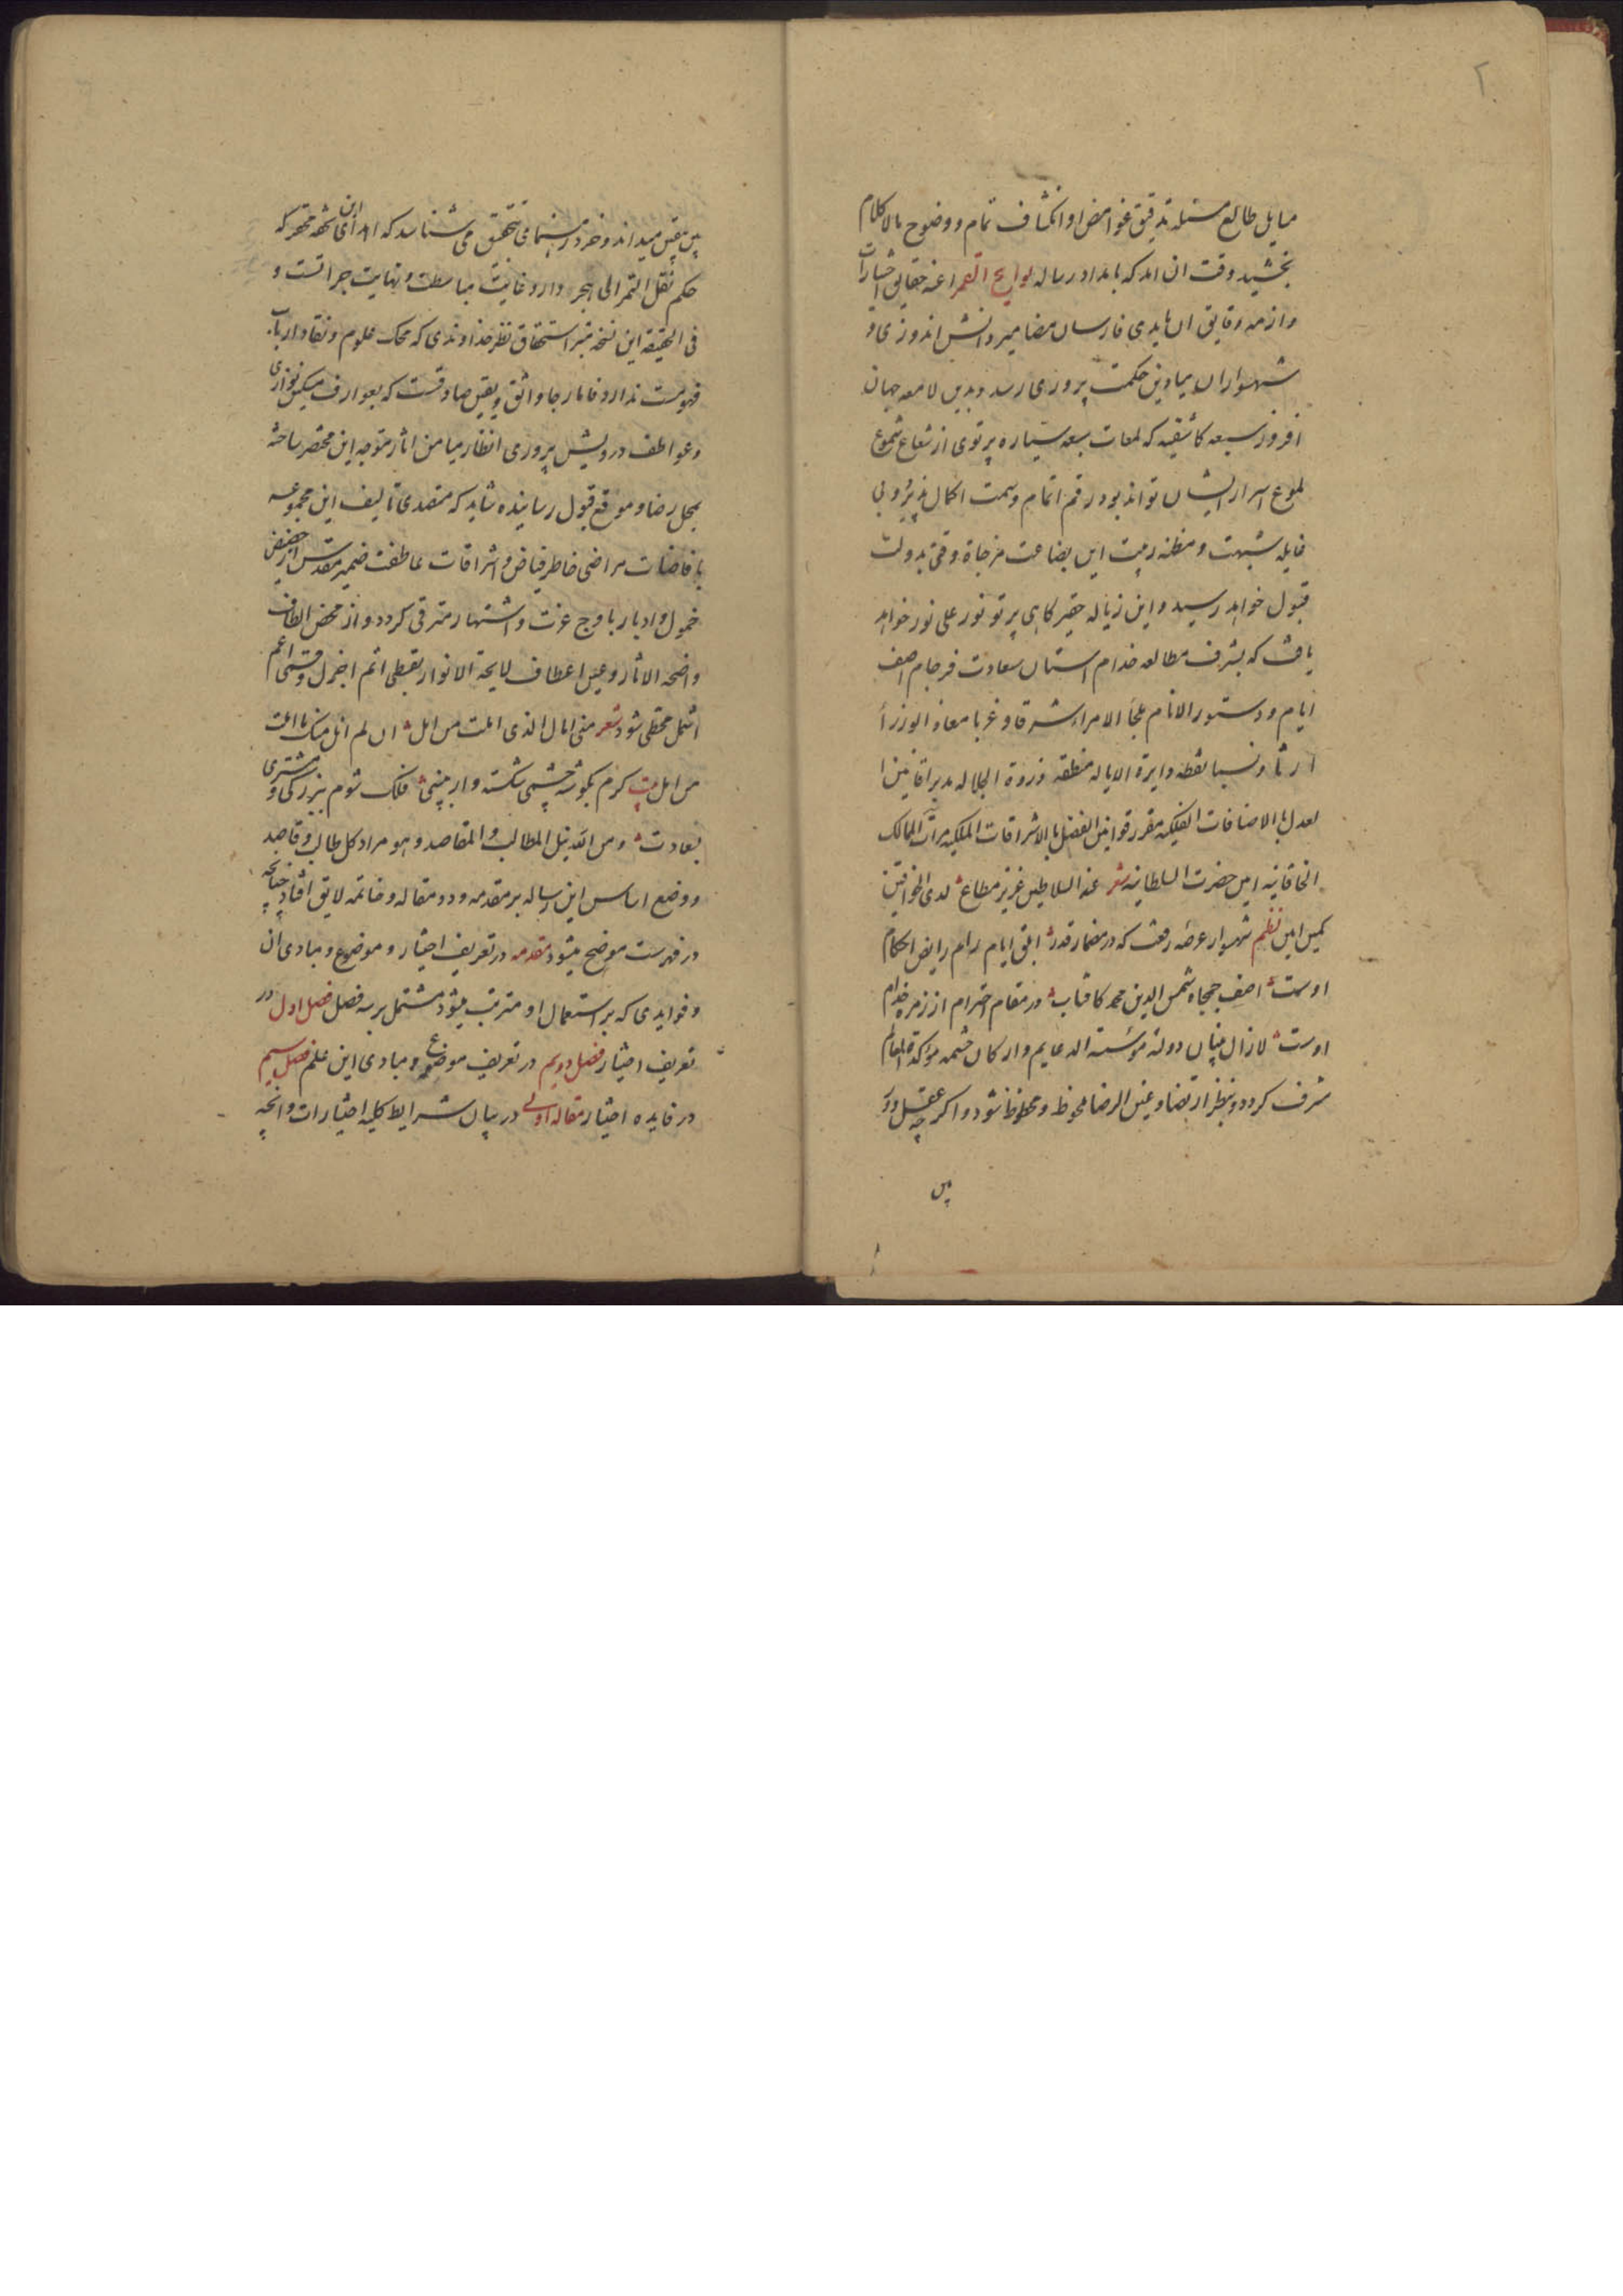 ۲
مسایل طالع مسئله تدقیق غوامض او انکشاف تمام و وضوح بالا کلام
بخشید وقت ان امد که بامداد رساله لوایح القمر اعنه حقایق اختیارات
و ازمه دقایق ان بایدی فارسان مضامیر دانش اندوزی و
شهسواران میادین حکمت پروری رسد و بدین لامعه جهان
افروز سبعه کاشفیه که لمعات سبعه سیاره پرتوی از شعاع شموع
لموع اسرار ایشان تواند بود رقم اتمام و سمت اکمال پذیرد و بی
غایله شبهت و مظنه ریبت این بضاعت مزجاة وقتی بدولت
قبول خواهد رسید و این زباله حقیر کاهی پرتو نور علی نور خواهد
یافت که بشرف مطالعه خدام استان سعادت فرجام اصف
ایام و دستور الانام ملجأ الامراء شرقا و غربا معاذ الوزرأ
ارثا و نسبا نقطه دایرة الایاله منطقه ذروة الجلاله مدبر افانین
لعدل بالاضافات الفلکیه مقرر قوانین الفضل بالاشراقات الملکیه مرآت الممالک
الخاقانیه امین حضرت السلطانیه شعر عند السلاطین عزیز مطاع لدی الخواقین
کمین امین نظم شهسوار عرصه رفعت که در مضمار قدر ابلق ایام رام رایض احکام
اوست اصف جمجاه شمس الدین محمد کافتاب در مقام احترام از زمره خدام
اوست لا زال بنیان دولته موسسة الدعایم و ارکان حشمه موکدة
شرف کردد و بنظر ارتضا و عین الرضا ملحوظ و محظوظ شود و اکرچه عقل دور
بین
بین بیقین میداند و خرد رهنما بی تحقیق می شناسد که اهدای این تحفه محقر که
حکم نقل التمر الی الهجر دارد غایت مباسطت و نهایت جراتست و
فی الحقیقه این نسخه تیر استحقاق نظر خداوندی که محک علوم و نقاد ارباب
فهومست ندارد فاما رجا واثق و یقین صادقست که بعوارف مسکین نوازی
و عواطف درویش پروری انظار میامن اثار متوجه این مختصر ساخته
بمحل رضا و موقع قبول رسانیده شاید که متصدی تالیف این مجموعه
بافاضات مراضی خاطر فیاض و اشراقات عاطفت ضمیر مقدس از حضیض
خمول و ادبار باوج عزت و اشتهار مترقی کردد و از محض الطاف
واضحه الاثار و عین اعطاف لایحة الانوار بقسطی اتم اجزل و قسمی اعم
اشمل محتظی شود شعر منی امال الذی املت من امل ان لم انل منک ما املت
من امل بیت کرم بکوشه چشمی شکسته وار ببینی فلک شوم ببزرکی و مشتری
بسعادت و من الله نیل المطالب و المقاصد و هو مراد کل طالب و قاصد
و وضع اساس این رساله بر مقدمه و دو مقاله و خاتمه لایق افتاد چنانچه
در فهرست موضح میشود مقدمه در تعریف اختیار و موضوع و مبادی ان
و فوایدی که بر استعمال او مترتب میشود مشتمل بر سه فصل فصل اول در
تعریف اختیار فصل دویم در تعریف موضوع و مبادی این علم فصل سیم
در فایده اختیار مقاله اولی در بیان شرایط کلیه اختیارات و انچه